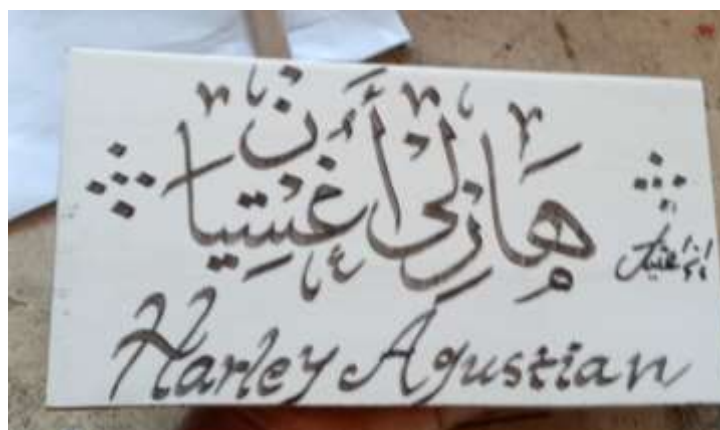 هَارْلِى أَغُسْتِيَان
Harley Agustian